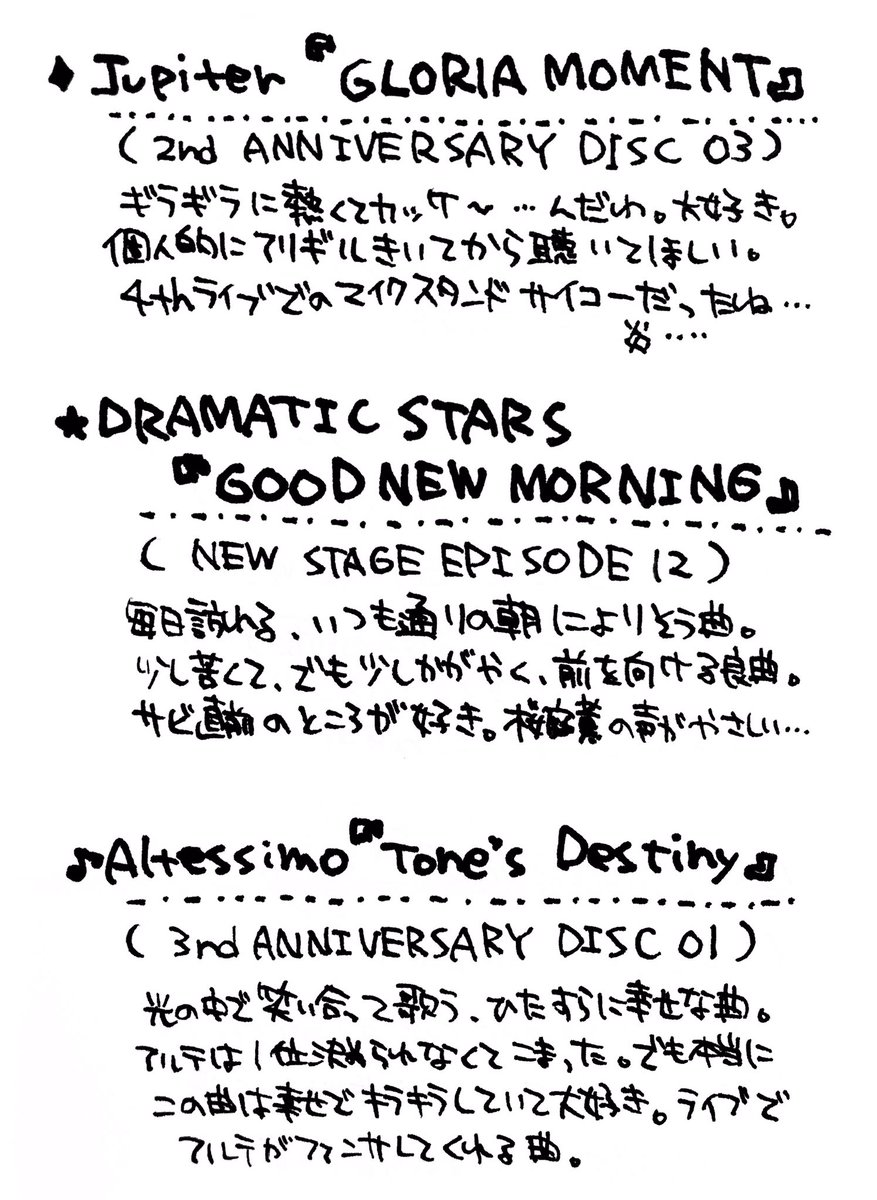 ♦Jupiter『GLORIA MOMENT』
(2nd ANNIVERSARY DISC 03)
ギラギラに熱くてカッケ～…んだわ。大好き。
個人的にアリギルきいてから聴いてほしい。
4thライブでのマイクスタンドサイコーだったしね…
……
★DRAMATIC STARS
『GOOD NEW MORNING』
(NEW STAGE EPISODE 12)
毎日訪れる、いつも通りの朝によりそう曲。
少し苦くて、でも少しかがやく、前を向ける良曲。
サビ直前のところが好き。桜庭薫の声がやさしい…
♪Altessimo『Tone's Destiny』
(3nd ANNIVERSARY DISC 01)
光の中で笑い合って歌う、ひたすらに幸せな曲。
アルテは1位決められなくてこまった。でも本当に
この曲は幸せでキラキラしていて大好き。ライブで
アルテがファンサしてくれる曲。